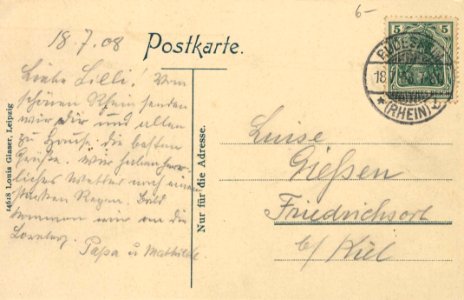 6-
18.7.08
Postkarte.
5 5
RÜDESH
18.7
*(RHEIN)*
Liebe Lilli! Vom
schönen Rhein senden
wir dir und allen
zu Hause die besten
Grüße. Wir haben herr-
liches Wetter nach einem
starken Regen. Bald
kommen wir an die
Loreley.
Papa u Mathilde
14628 Louis Glaser, Leipzig
Nur für die Adresse.
Luise
Gießen
Friedrichsort
b/ Kiel